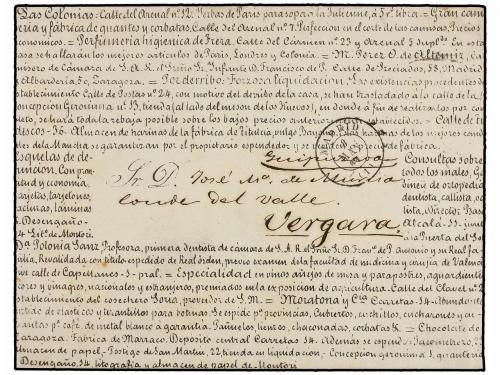 Las Colonias = Calle del Arenal nº 12. Yerbas de Paris para sopa la Julienne, á 5 rs libra. = Gran cami
seria y fábrica de guantes y corbatas. Calle del Arenal nº 7. Perfeccion en el corte de las camisas, Precios
economicos. = Perfumeria higiénica de Frera. Calle del Cármen nº 23 y Arenal 5 Supldo En esta
casa se hallarán los mejores articulos de Paris, Londres y Colonia. = Mr. Perez D. de
mésero de Cámara de S.A.R. el Srmo Sr. Infante D. Francisco de P. Calle de Preciados, 58, Madrid
y Albarderia, 5c, Zaragoza. = Por derribo: Forzosa liquidacion. Las existencias procedentes de
establecimiento Calle de Postas nº 24, con motivo del derribo de la casa, se han trasladado á la calle de la
Concepcion Geronima nº 13, tienda (al lado del meson de los Huevos), en donde á fin de realizarlos por com
pleto, se hará toda la rebaja posible sobre los bajos precios anteriormente establecidos. = Calle de tu
descos-36. Almacen de harinas de la fábrica de Titulcia, vulgo harinas de los mejores cande
ales de la Mancha se garantizan por el propietario espendedor y fábrica.
MADRID
Guipuzcoa
Esquelas de de-
funcion. Con pron-
titud y economia.
Tarjetas, tarjetones,
facturas, láminas
-Desengaño-
14 Lit. de Montori.
Sr. D. José Ma. de Murua
conde del Valle
Vergara.
Consultas sobre
todos los males, Ga
binete de ortopedia
dentista, callista, oc
lista, Director Bas
Alcalá-33-junt
á la Puerta del Sol
Dª Polonia Sanz Profesora, primera dentista de cámara de S.A.R. el Srmo Sr. D. Franco de P. Antonio y su Real fa
milia, Revalidada con titulo espedido de Real órden, previo examen de la facultad de medicina y cirujia de Valenc
vive calle de Capellanes-5-pral. = Especialidad en vinos añejos de mesa y para postres, aguardiente
cores y vinagres, nacionales y estranjeros, premiados en la exposicion de agricultura. Calle del Clavel nº 2
establecimiento del cosechero Soria, proveedor de S.M. = Moratona y Cia Carretas 14. Abundante
surtido de elasticos y trensillo para botinas. Se espide pa provincias, Cubiertos, cuchillos, cucharones y ca
pa café, de metal blanco á garantia. Pañuelos, lienzos, chaconadas, corbatas &. = Chocolate de
Zaragoza. Fábrica de Marraco. Depósito central Carretas 14. Además se espende Jacometrezo, 22
almacen de papel,- Postigo de San Martin, 22, tienda en liquidacion - Concepcion geronima 1, guanteria
Desengaño, 14, litografia y almacen de papel de Montori